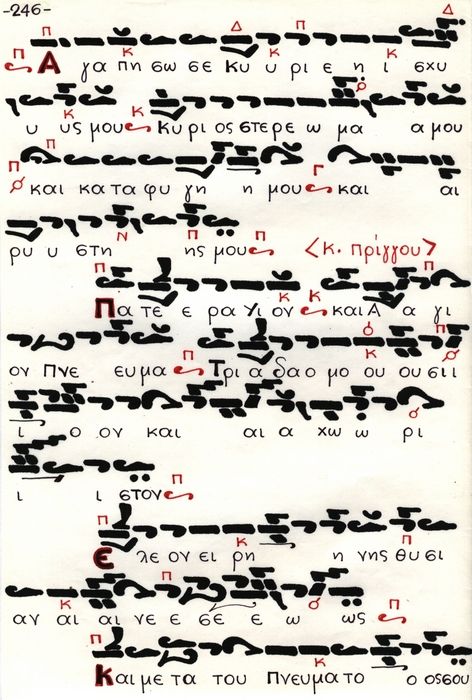 -246-
Α γα πη σω σε Κυ υ ρι ε η ι σχυ
υ υς μου Κυ ρι ος στε ρε ω μα α μου
και κα τα φυ γη η μου και αι
ρυ υ στη ης μου <Κ. Πρίγγου>
Πα τε ε ρα Υι ον και Α α γι
ον Πνε ευμα Τρι α δα ο μο ου ου σι ι
ι ο ον και αι α χω ω ρι
ι ι στον
Ε λε ον ει ρη η νης θυ σι
αν αι αι νε ε σε ε ω ως
Και με τα του Πνευμα το ο ος σου